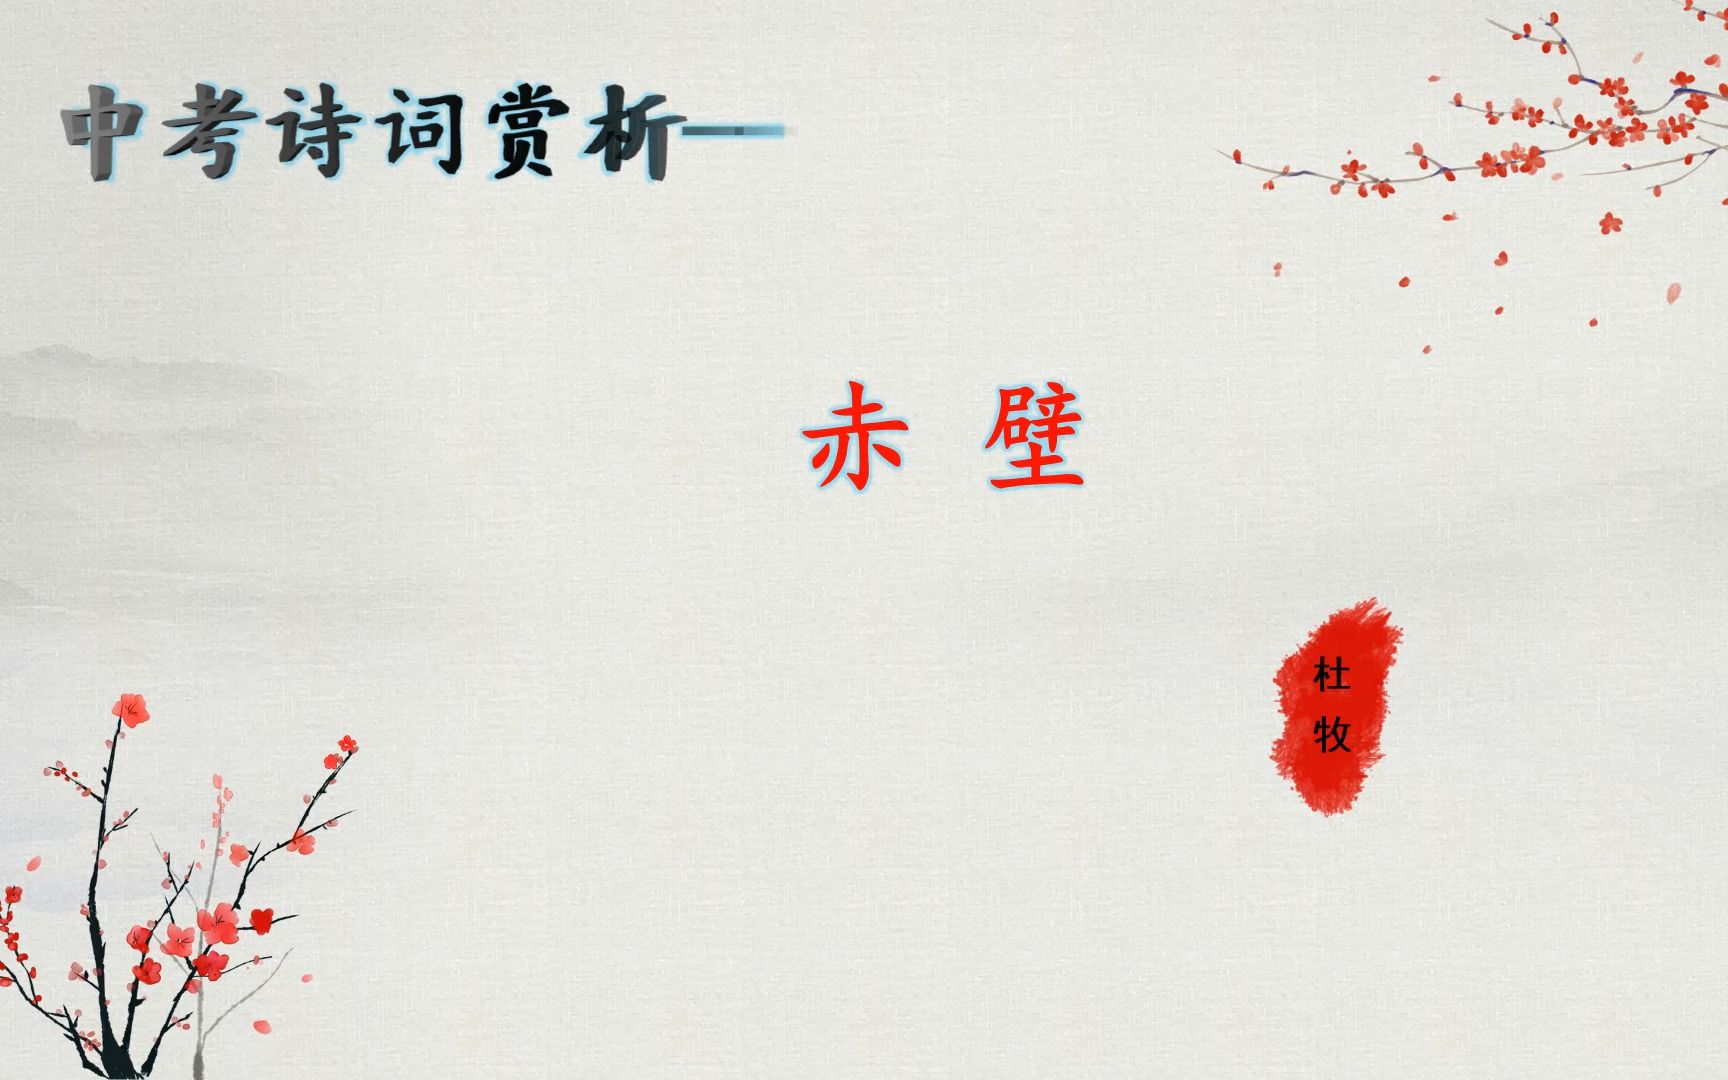 中考诗词赏析—
赤壁
杜
牧